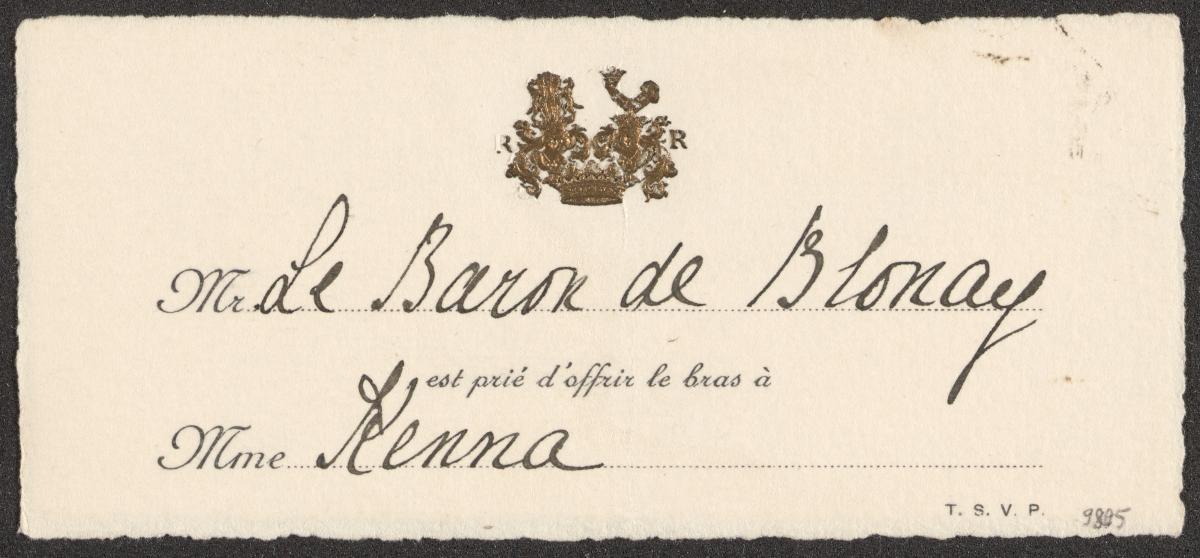 R R
Mr. Le Baron de Blonay
est prié d'offrir le bras à
Mme Kenna
T. S. V. P.